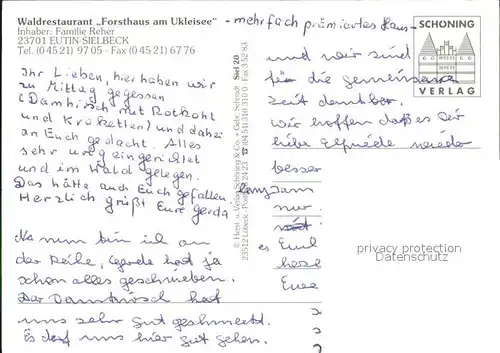 Waldrestaurant „Forsthaus am Ukleisee“
Inhaber: Familie Reher
23701 EUTIN-SIELBECK
Tel. (0 45 21) 97 05 · Fax (0 45 21) 67 76
- mehrfach prämiertes Haus -
Ihr Lieben, hier haben wir
zu Mittag gegessen
(Damhirsch mit Rotkohl
und Kroketten) und dabei
an Euch gedacht. Alles
sehr urig eingerichtet
und im Wald gelegen.
Das hätte auch Euch gefallen.
Herzlich grüßt Eure Gerda
Na nun bin ich an
der Reihe, Gerda hat ja
schon alles geschrieben.
Der Damhirsch hat
uns sehr gut geschmeckt.
Es darf uns hier gut gehen.
© Herst. u. Verlag Schöning & Co. + Gebr. Schmidt
23512 Lübeck · Postfach 24 23 ☎ (04 51) 310 310 Fax 3 52 83
Siel 20
und wir sind
für die gemeinsame
Zeit dankbar.
Wir hoffen daß es Dir
liebe Elfriede wieder
besser
langsam
nur
es
Eure
SCHÖNING
VERLAG
privacy protection
Datenschutz